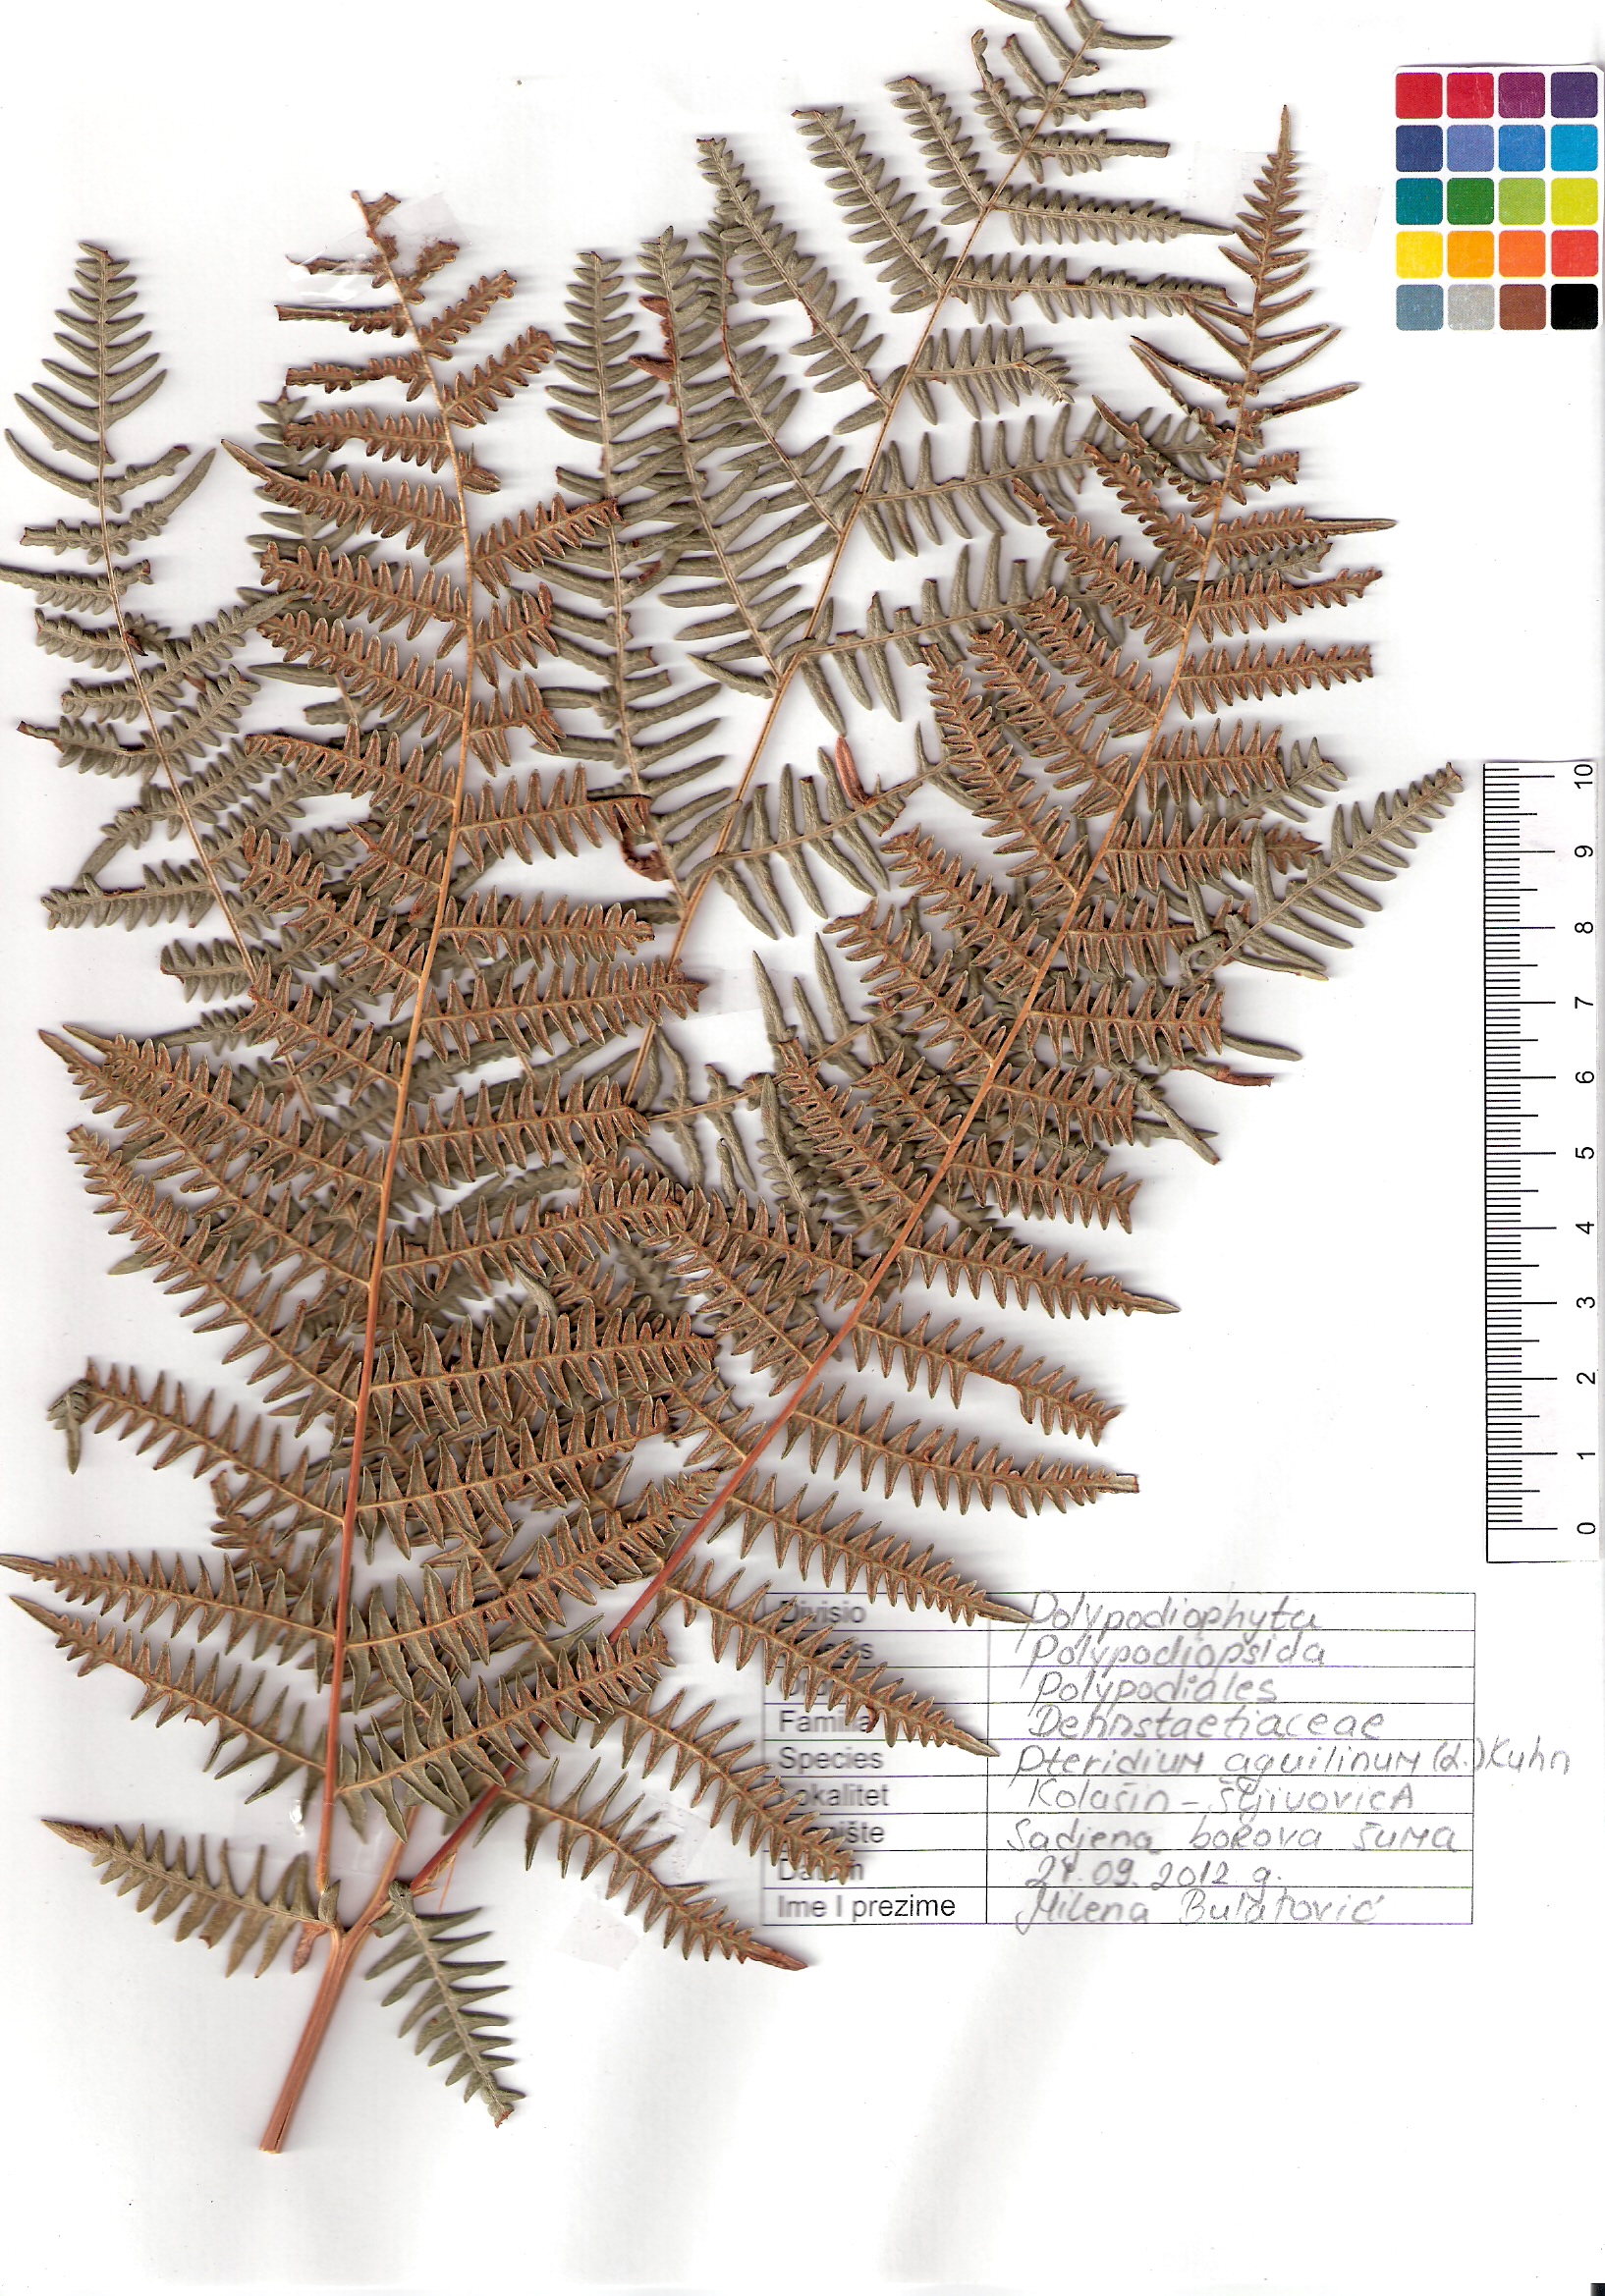 10
9
8
7
6
5
4
3
2
1
0
Divisio Polypodiophyta
Polypodiopsida
Polypodiales
Familia Dennstaetiaceae
Species Pteridium aquilinum (L.) Kuhn
Lokalitet Kolašin -
Sadjena borova šuma
Datum 09. 2012 g.
Ime I prezime Milena Bulatović